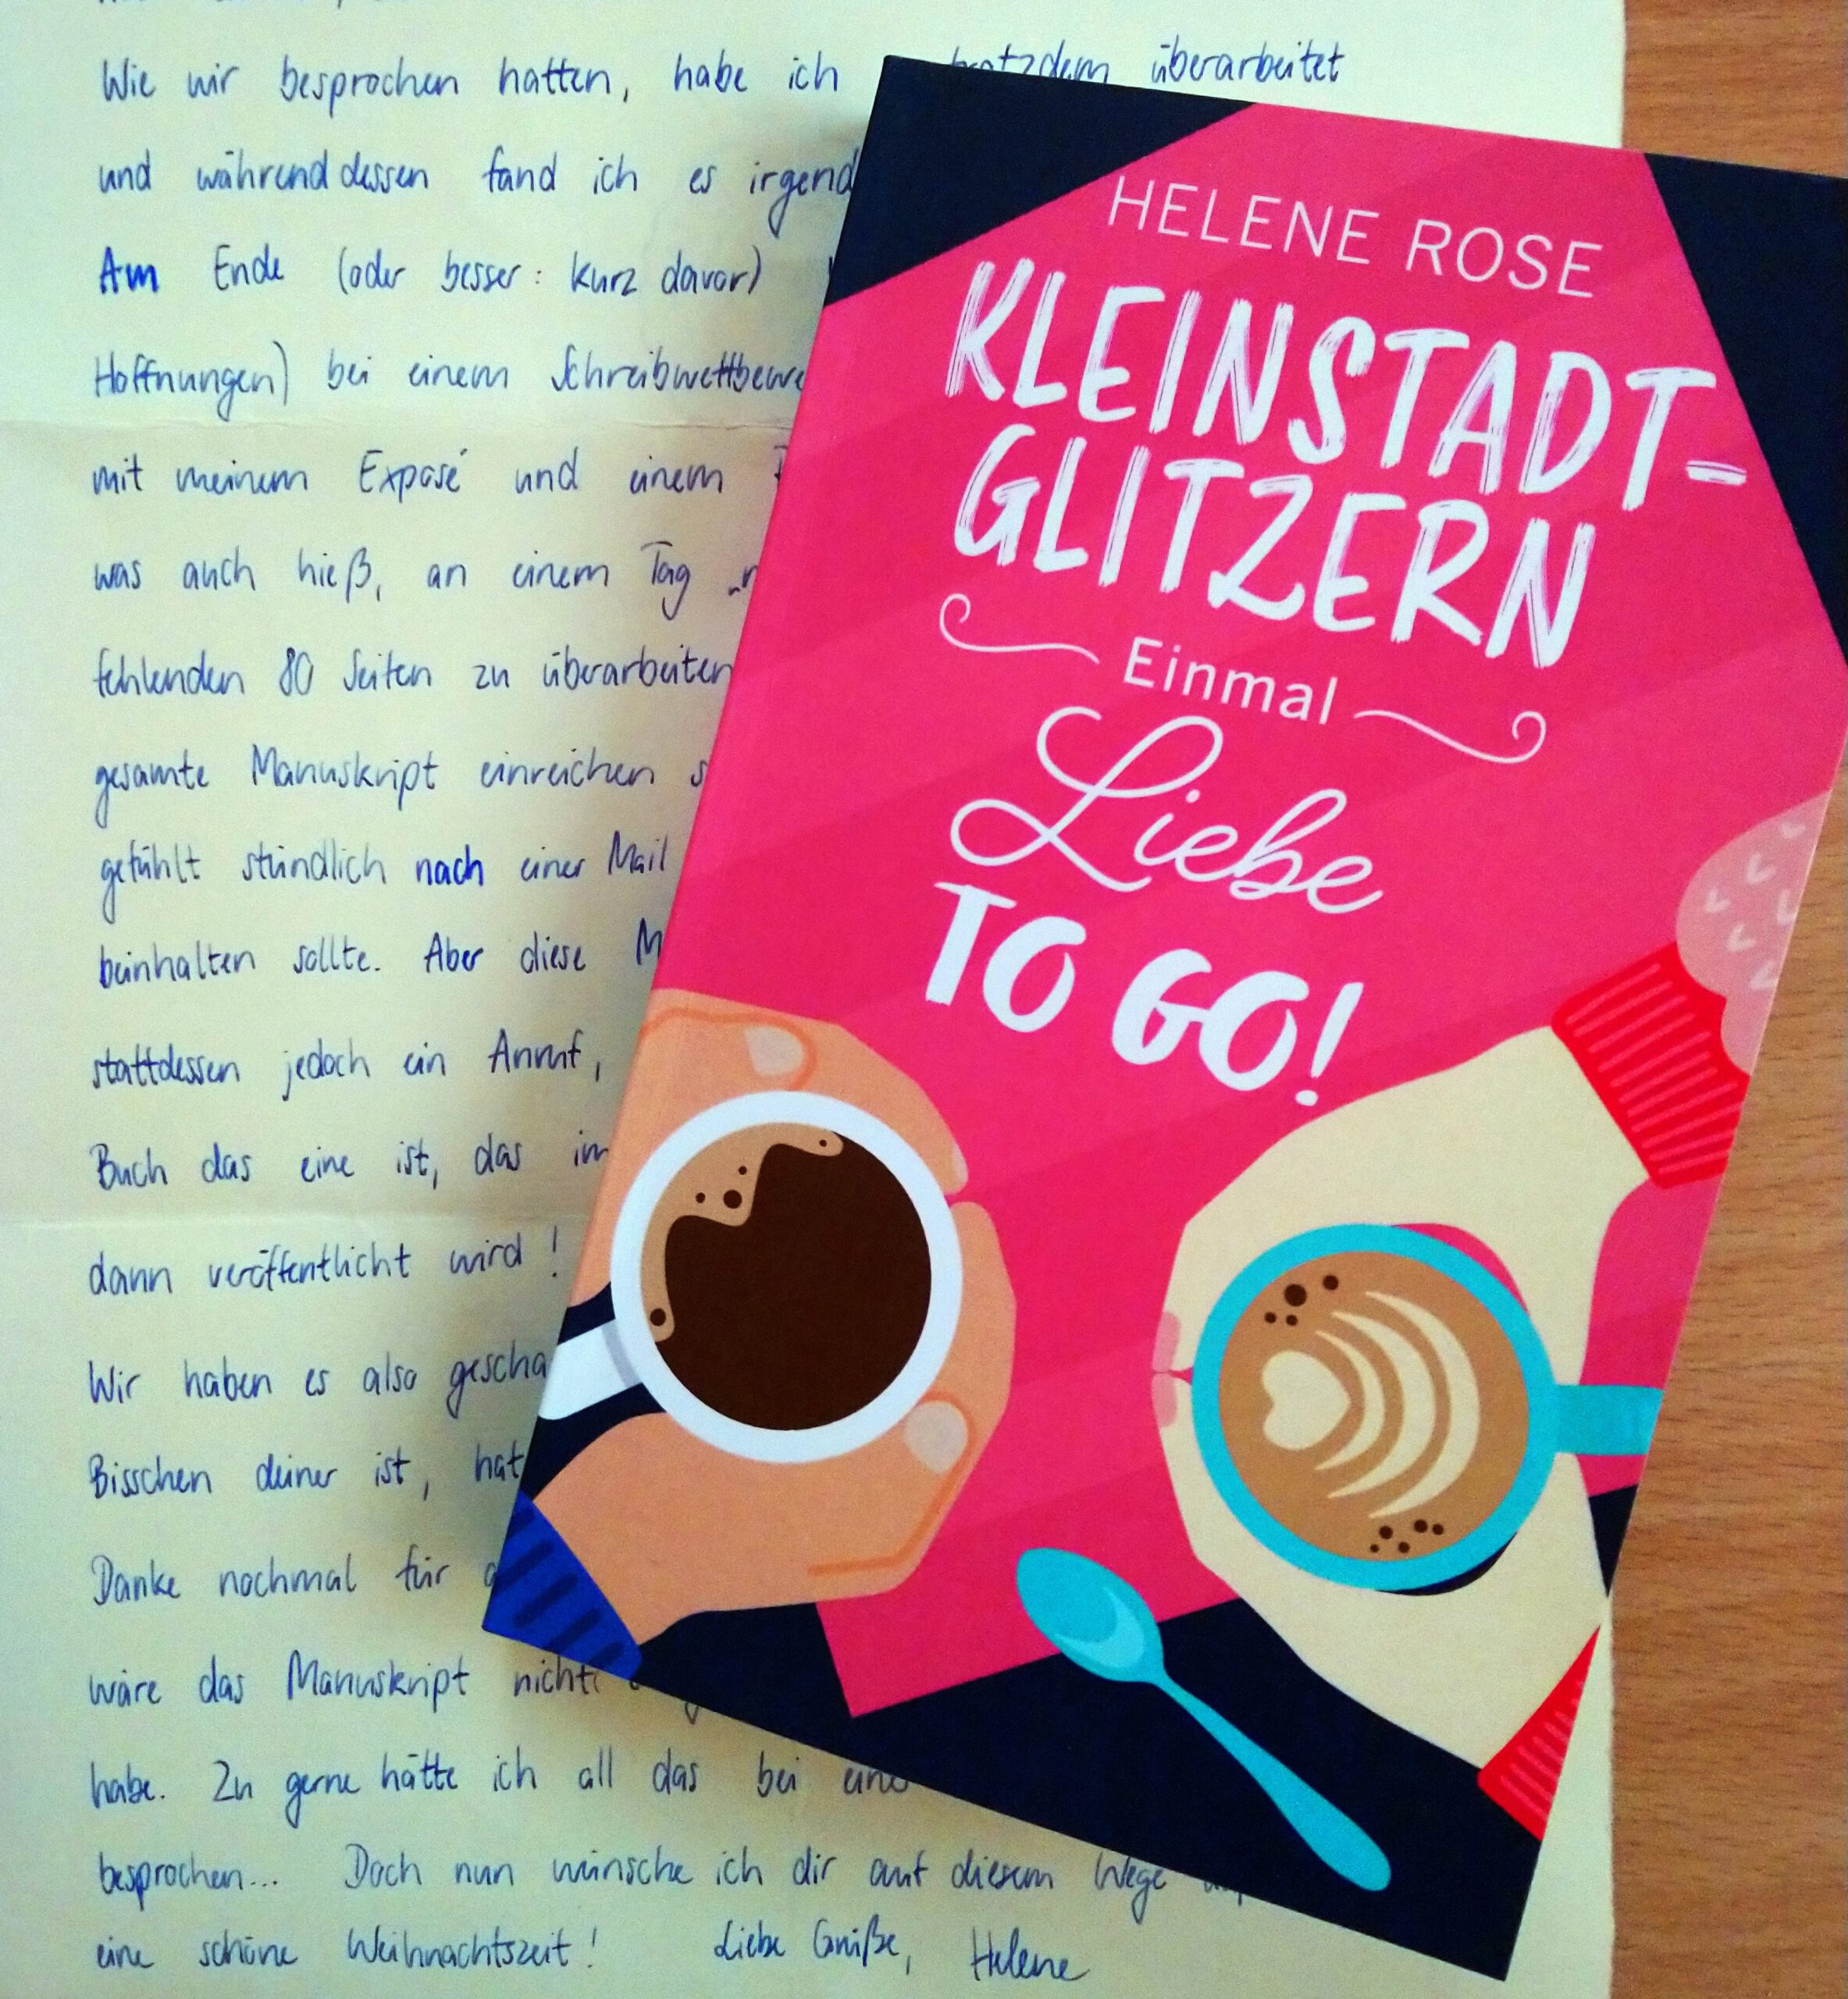 Wie wir besprochen hatten, habe ich trotzdem überarbeitet
und währenddessen fand ich es irgend
Am Ende (oder besser: kurz davor)
Hoffnungen) bei einem Schreibwettbewe
mit meinem Exposé und einem
was auch hieß, an einem Tag
fehlenden 80 Seiten zu überarbeiten
gesamte Manuskript einreichen s
gefühlt stündlich nach einer Mail
beinhalten sollte. Aber diese M
stattdessen jedoch ein Anruf,
Buch das eine ist, das im
dann veröffentlicht wird!
Wir haben es also gescha
Bisschen deiner ist, hat
Danke nochmal für
wäre das Manuskript nicht
habe. Zu gerne hätte ich all das bei
besprochen... Doch nun wünsche ich dir auf diesem Wege
eine schöne Weihnachtszeit! Liebe Grüße, Helene
HELENE ROSE
KLEINSTADT-
GLITZERN
Einmal
Liebe
TO GO!